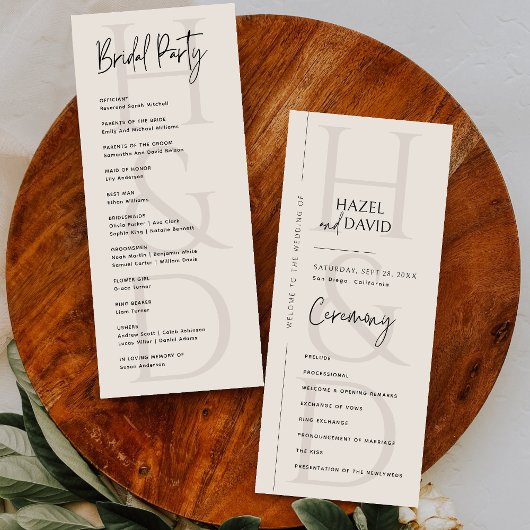 H
&
D
Bridal Party
OFFICIANT
Reverend Sarah Mitchell
PARENTS OF THE BRIDE
Emily And Michael Williams
PARENTS OF THE GROOM
Samantha Ann David Nelson
MAID OF HONOR
Lily Anderson
BEST MAN
Ethan Williams
BRIDEMAIDS
Olivia Parker | Ava Clark
Sophia King | Natalie Bennett
GROOMSMEN
Noah Martin | Benjamin White
Samuel Carter | William Davis
FLOWER GIRL
Grace Turner
RING BEARER
Liam Turner
USHERS
Andrew Scott | Caleb Robinson
Lucas Miller | Daniel Adams
IN LOVING MEMORY OF
Susan Anderson
H
&
D
WELCOME TO THE WEDDING OF
HAZEL
and DAVID
SATURDAY, SEPT 28, 20XX
San Diego, California
Ceremony
PRELUDE
PROCESSIONAL
WELCOME & OPENING REMARKS
EXCHANGE OF VOWS
RING EXCHANGE
PRONOUNCEMENT OF MARRIAGE
THE KISS
PRESENTATION OF THE NEWLYWEDS